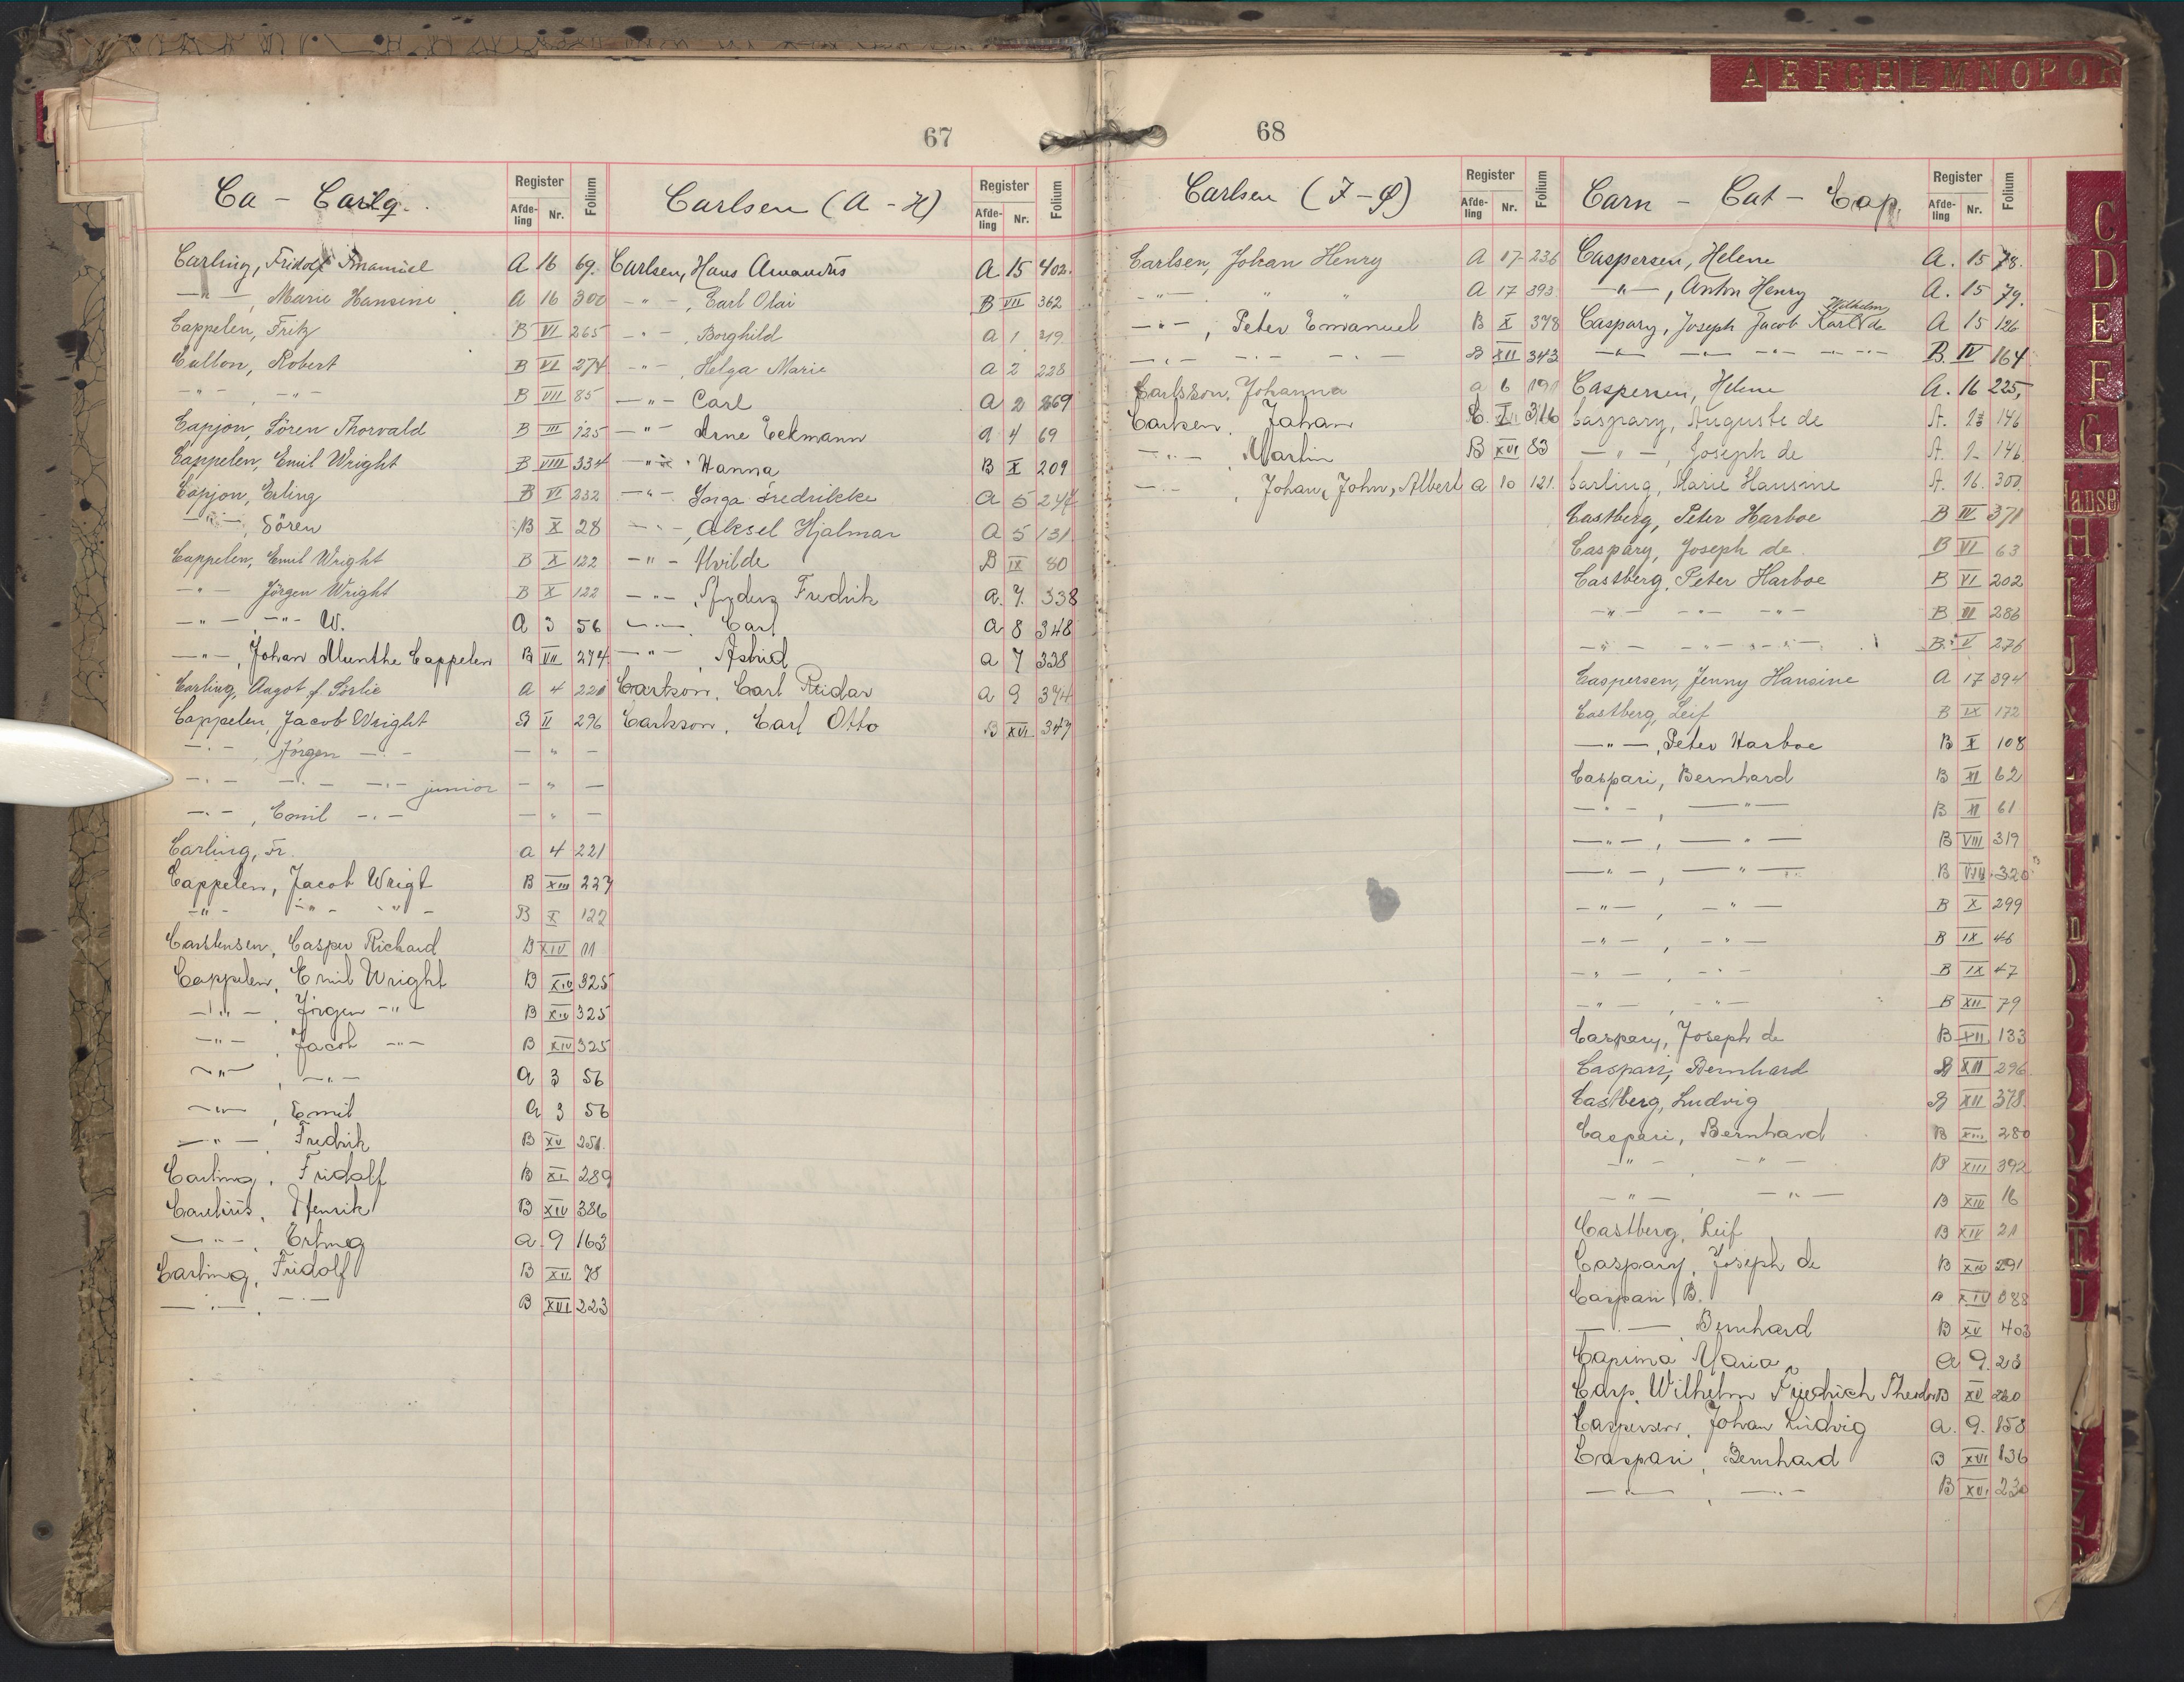 A E F G H L M N O P Q R
67
Ca - Carlg.
Register
Afde-ling Nr. Folium
Carling, Fridolf Emanuel A 16 69.
-"-, Marie Hansine A 16 300
Cappelen, Fritz B VI 265
Callon, Robert B VI 274
-"- , -"- B VII 85
Capjon, Sören Thorvald B III 125
Cappelen, Emil Wright B VIII 334
Capjon, Erling B VI 232
-"-, Sören B X 28
Cappelen, Emil Wright B X 122
-"- Jörgen Wright B X 122
-"- -"- W. A 3 56
-"-, Johan Munthe Cappelen B VII 274
Carling, Aagot f. Sørlie A 4 220
Cappelen, Jacob Wright B II 296
-"-, Jörgen -"- - " -
-"- -"- -"- junior - " -
-"-, Emil -"- - " -
Carling, Fr. a 4 221
Cappelen, Jacob Wrigt B XIII 227
-"- -"- -"- B X 122
Carstensen, Casper Richard B XIV 11
Cappelen, Emil Wright B XIV 325
-"- Jörgen -"- B XIV 325
-"-, Jacob -"- B XIV 325
-"-, -"- A 3 56
-"-, Emil A 3 56
-"-, Fredrik B XV 251.
Carling, Fridolf B XI 289
Henrik B XIV 386
-"-, a. 9 163
Carling, Fridolf B XII 78
-"-, -"- B XVI 223
Carlsen (A - H)
Register
Afde-ling Nr. Folium
Carlsen, Hans Amandus A 15 402.
-"-, Carl Olai B VII 362
-"-, Borghild A 1 319
-"-, Helga Marie A 2 228
-"- Carl A 2 369
-"- Arne Eckmann A 4 69
-"- Hanna B X 209
-"- Inga Fredrikke A 5 247
-"-, Aksel Hjalmar A 5 131
-"- Hvilde B IX 80
-"-, Fredrik A. 7. 338
-"-, Carl A 8 348
-"-, Astrid a 7 338
Carlson, Carl Reidar a 9 374
Carlsson, Carl Otto B XVI 347
68
Carlsen (I - Ø)
Register
Afde-ling Nr. Folium
Carlsen, Johan Henry A 17 236
-"- " " A 17 393
-"-, Peter Emanuel B X 378
-"- -"- -"- B XII 343
Carlsson, Johanna a 6 190
Carlsen, Johan 316
-"-, Martin B XVI 83
-"-, Johan, John, Albert a 10 121.
Carn - Cat - Cap.
Register
Afde-ling Nr. Folium
Caspersen, Helene A. 15 78.
-"-, Anton Henry A. 15 79.
Wilhelm
Caspary, Joseph Jacob Karl de A 15 126
-"- -"- -"- -"- B. IV 164
Caspersen, Helene A. 16 225,
Caspary, Auguste de A. 146
-"-, Joseph de A. 146.
Carling, Marie Hansine A. 16. 300.
Castberg, Peter Harboe B IV 371
Caspary, Joseph de B VI 63
Castberg, Peter Harboe B VI 202
-"- -"- -"- B VII 286
-"- -"- -"- B. V 276
Caspersen, Jenny Hansine A 17 394
Castberg, Leif B IX 172
-"-, Peter Harboe B X 108
Caspari, Bernhard B XI 62
-"-, -"- B XI 61
-"-, -"- B VIII 319
-"-, -"- B VIII 320
-"-, -"- B X 299
-"-, -"- B IX 46
-"-, -"- B IX 47
-"-, -"- B XII 79
Caspary, Joseph de B XII 133
Caspari, Bernhard B XIII 296
Castberg, Ludvig B XII 378.
Caspari, Bernhard B XIII 280
-"-, -"- B XIII 392
-"-, -"- B XIII 16
Castberg, Leif B XIV 21
Caspary, Joseph de B XIV 291
Caspari B. B XIV 388
-"-, Bernhard B XV 403
Caprina Maria A 9. 28
Carp, Wilhelm Friedrich Theodor B XV 220
Caspersen, Johan Ludvig a. 9. 158
Caspari, Bernhard B XVI 136
-"-, -"- B XVI 230
C
D
E
F
G
Hanse
H
I
J
K